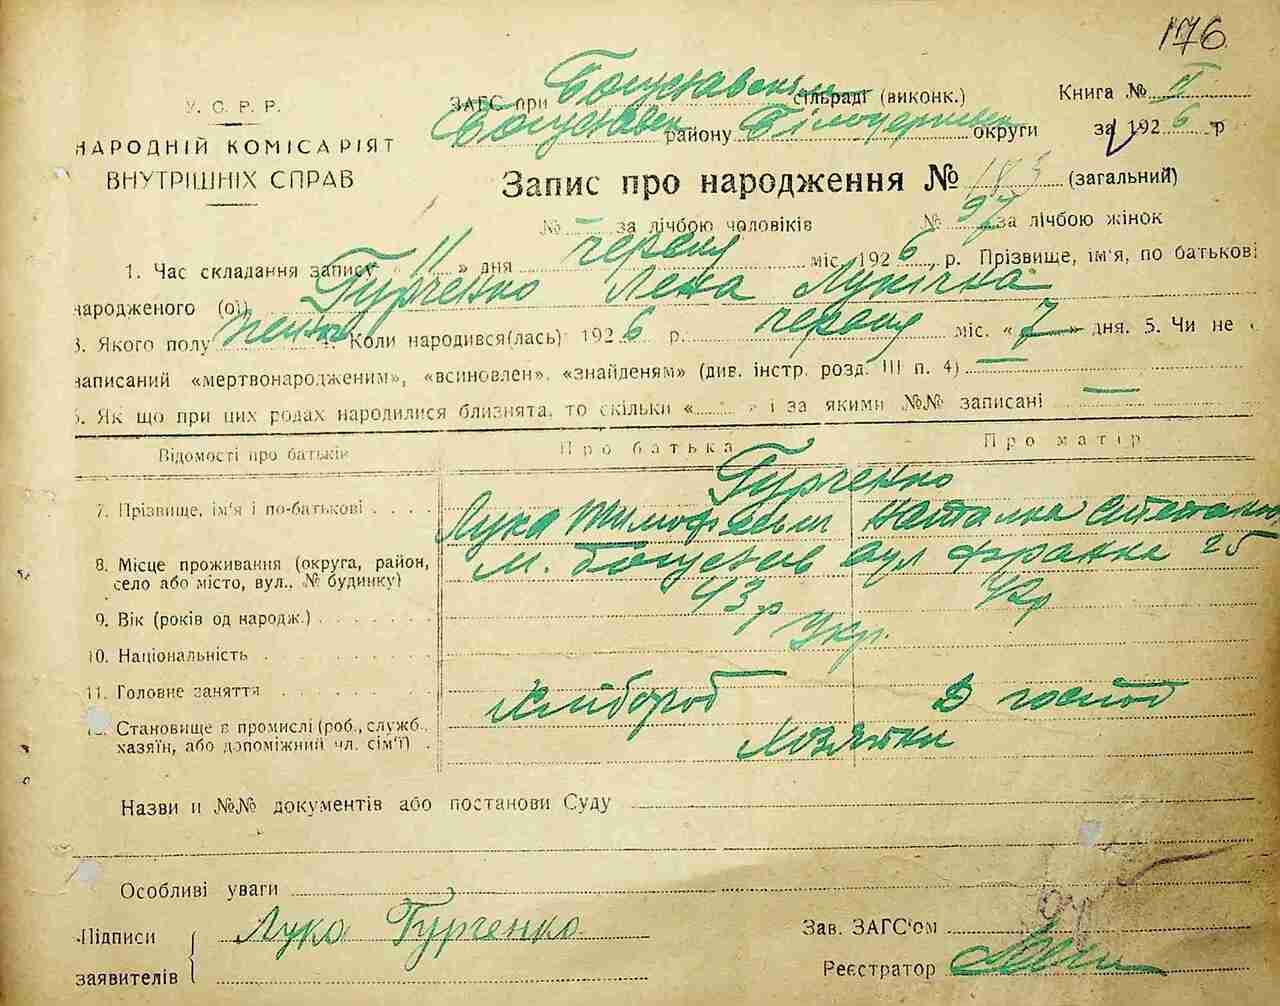 176
У.С.Р.Р.
НАРОДНІЙ КОМІСАРІЯТ
ВНУТРІШНІХ СПРАВ
ЗАГС при Богуславськ сільраді (виконк.) Книга №
Богуславськ району Білоцерківськ округи за 1926 р
Запис про народження № 183 (загальний)
№ — за лічбою чоловіків № 97 за лічбою жінок
1. Час складання запису „ 11 » дня червня міс. 1926, р. Прізвище, ім'я, по батькові
народженого (ої) Гурченко Лена Лукічна
3. Якого полу жіноч 4. Коли народився(лась) 1926 р. червня міс. «7» дня. 5. Чи не
записаний «мертвонародженим», «всиновлен», «знайденям» (див. інстр. розд. III п. 4) —
6. Як що при цих родах народилися близнята, то скільки « » і за якими №№ записані —
Відомості про батьків Про батька Про матір
7. Прізвище, ім'я і по-батькові Гурченко
Лука Тимофієвич Наталка Степанів
8. Місце проживання (округа, район, село або місто, вул., № будинку) м. Богуслав вул Франка 25
9. Вік (років од народж.) 43 р 42 р
10. Національність Укр.
11. Головне заняття Хлібороб В господ
12. Становище в промислі (роб., служб., хазяїн, або допоміжний чл. сім'ї) Хозяйки
Назви и №№ документів або постанови Суду
Особливі уваги
Підписи заявителів Лука Гурченко
Зав. ЗАГС'ом
Реєстратор